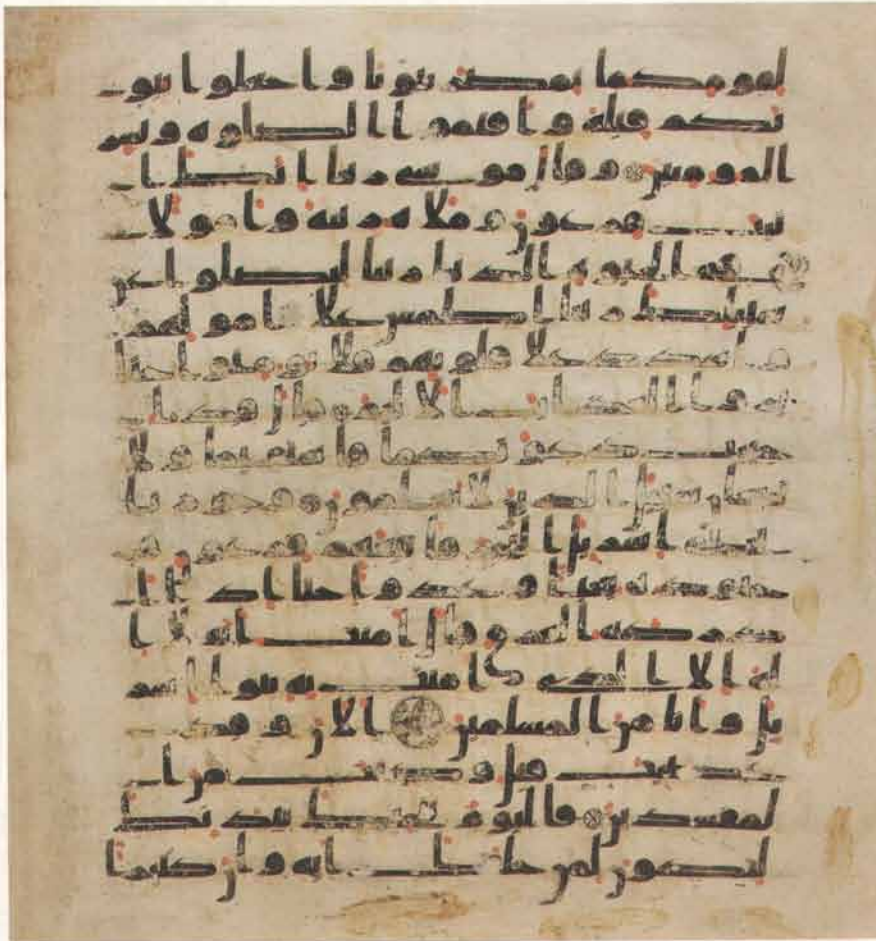 لقومكما بمصر بيوتا واجعلوا بيو
تكم قبلة واقيموا الصلوه وبشر
المومنين وقال موسى ربنا انك ا
تيت فرعون وملاه زينه وامولا
في الحيوه الدنيا ربنا ليضلوا عن
سبيلك ربنا اطمس علا امولهم
واشدد علا قلوبهم فلا يومنوا حتا
يروا العذاب الاليم قال قد ا
جيبت دعوتكما فاستقيما ولا
تتبعان سبيل الذين لا يعلمون وجوزنا
ببني اسريل البحر فاتبعهم فرعون و
جنوده بغيا وعدوا حتا اذا ا
دركه الغرق قال امنت انه لا ا
له الا الذي امنت به بنوا اسر
يل وانا من المسلمين الان وقد
عصيت قبل وكنت من ا
لمفسدين فاليوم ننجيك ببدنك
لتكون لمن خلفك ايه وان كثيرا